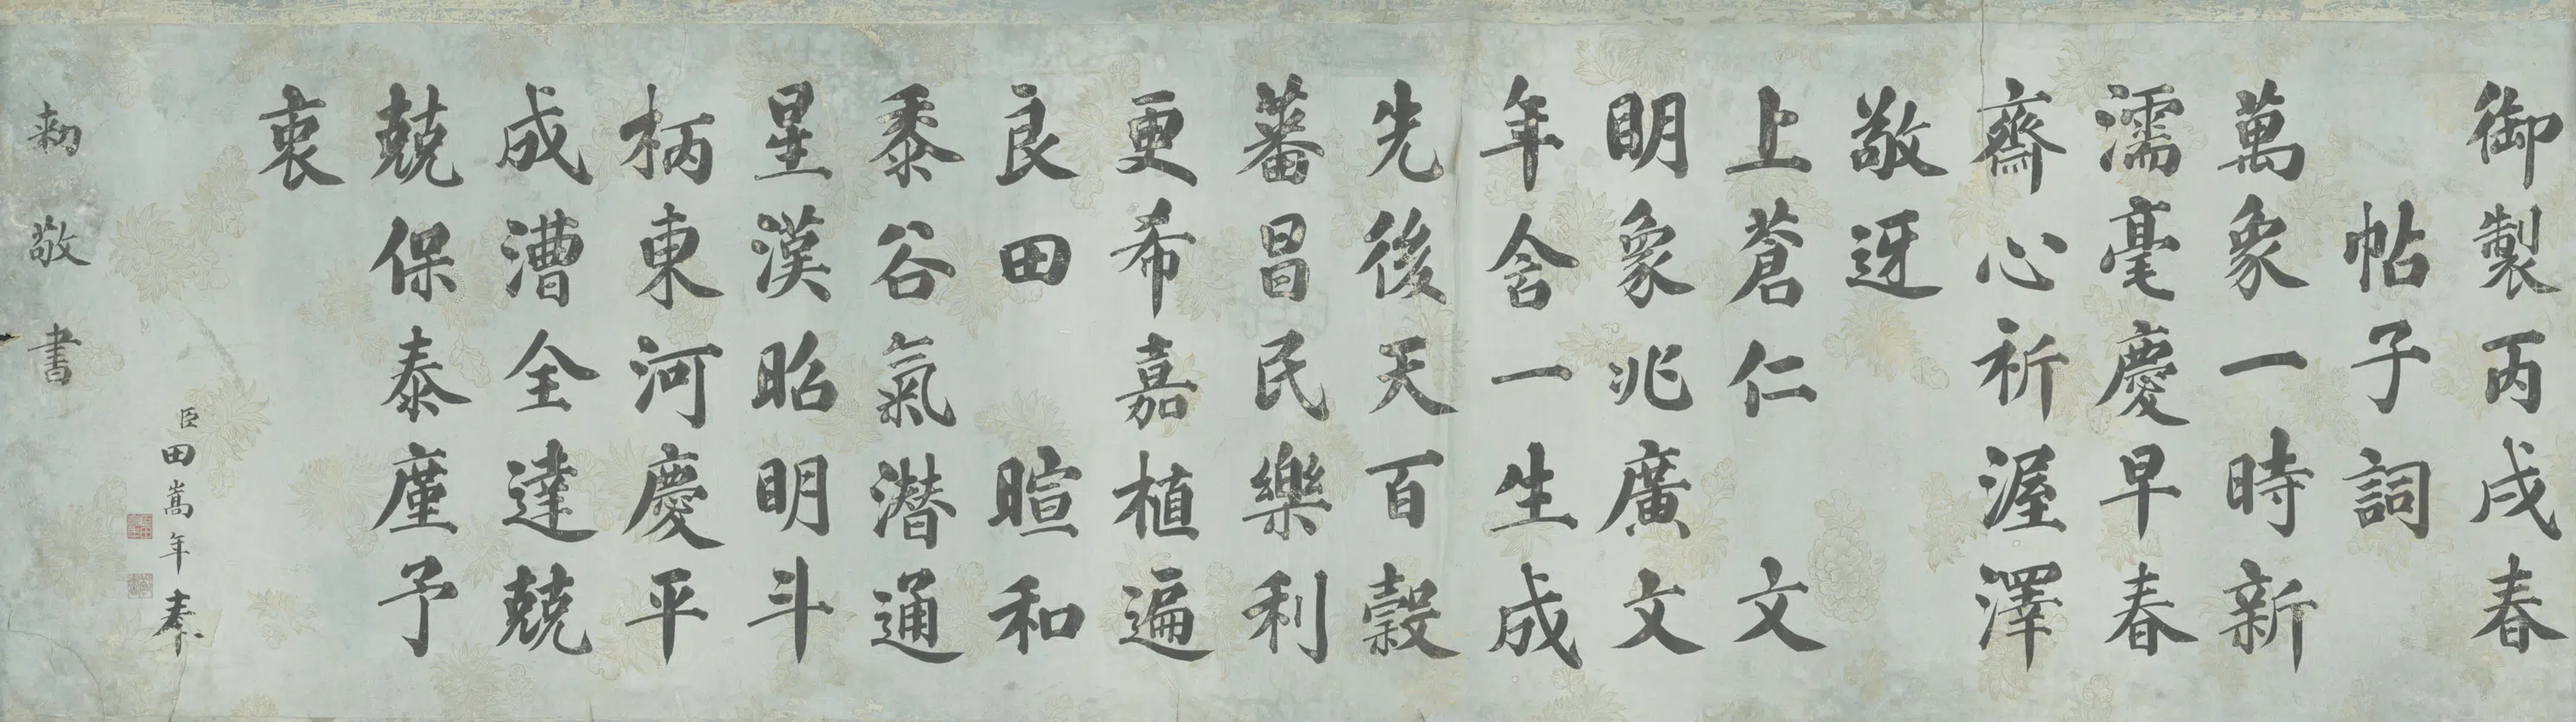 御製丙戌春
帖子詞
萬象一時新
濡毫慶早春
齋心祈渥澤
敬迓
上蒼仁　文
明象兆廣文
年含一生成
先後天百穀
蕃昌民樂利
更希嘉植遍
良田　暄和
黍谷氣潛通
星漢昭明斗
柄東河慶平
成漕全達兢
兢保泰廑予
衷
臣田嵩年奉
敕敬書